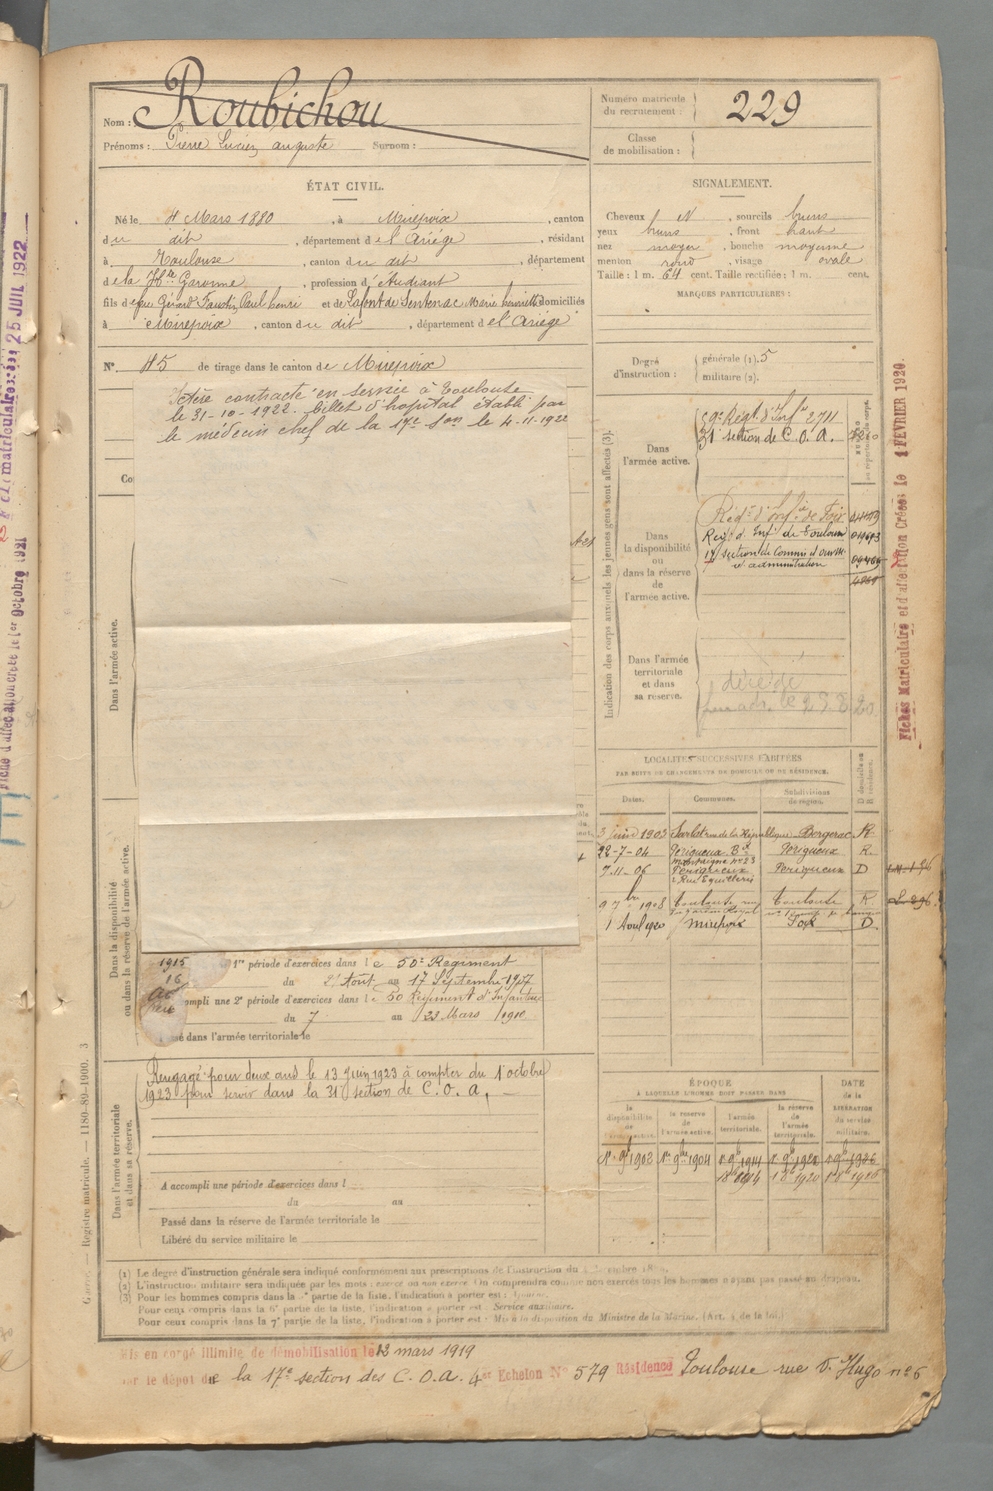 Roubichou
Nom :
Prénoms : Pierre Lucien auguste Surnom :
Numéro matricule
du recrutement : 229
Classe
de mobilisation :
ÉTAT CIVIL.
Né le 4 Mars 1880, à Mirepoix, canton
du dit, département de l'Ariége, résidant
à Toulouse, canton du dit, département
de la Hte Garonne, profession d'étudiant
fils de feu Gérard Faustin Paul henri et de Lafont de Sentenac Marie henriette domiciliés
à Mirepoix, canton du dit, département de l'Ariége
N° 45 de tirage dans le canton de Mirepoix
SIGNALEMENT.
Cheveux N, sourcils bruns
yeux bruns, front haut
nez moyen, bouche moyenne
menton rond, visage ovale
Taille : 1 m. 64 cent. Taille rectifiée : 1 m. cent.
MARQUES PARTICULIÈRES :
Degré
d'instruction :
générale (1). 5
militaire (2).
Ictère contracté en service à Toulouse
le 31-10-1922. billet d'hopital établi par
le médecin chef de la 17e Son le 4-11-1922
Dans l'armée active.
Indication des corps auxquels les jeunes gens sont affectés (3).
Dans
l'armée active.
59e Régt d'Infie 2711
31e section de C. O. A.
Dans
la disponibilité
ou
dans la réserve
de
l'armée active.
Regt d'Infie de Foix
Regt d'Inf de Toulouse
17 section de Commis et ouvr
d'administration
Dans l'armée
territoriale
et dans
sa réserve.
décédé
LOCALITÉS SUCCESSIVES HABITÉES
PAR SUITE DE CHANGEMENTS DE DOMICILE OU DE RÉSIDENCE.
Dates. Communes. Subdivisions
de région. D domicile ou
R résidence.
3 juin 1903 Sarlat rue de la République Bergerac R
22-7-04 Perigueux Bd Périgueux R.
montaigne no 23
7.11-06 Périgueux Perigueux D
2 Rue Eguillerie
9 7bre 1908 Toulouse Toulouse R
1 Aoul 1920 Mirepoix Foix D.
Dans la disponibilité
ou dans la réserve de l'armée active.
1915
16
1re période d'exercices dans le 50e Regiment
du 21 Aout au 17 Septembre 1907
compli une 2e période d'exercices dans le 50 Régiment d'Infanterie
du 7 au 23 Mars 1910
dans l'armée territoriale le
Dans l'armée territoriale
et dans sa réserve.
Rengagé pour deux ans le 13 Juin 1923 à compter du 1 octobre
1923 pour servir dans la 31e section de C. O. A.
A accompli une période d'exercices dans l
du au
Passé dans la réserve de l'armée territoriale le
Libéré du service militaire le
ÉPOQUE
À LAQUELLE L'HOMME DOIT PASSER DANS
DATE
de la
LIBÉRATION
du service
militaire.
la
disponibilité
de
l'armée active.
la réserve
de
l'armée active.
l'armée
territoriale.
la réserve
de
l'armée
territoriale.
1er 9bre 1904
(1) Le degré d'instruction générale sera indiqué conformément aux prescriptions de l'instruction du
(2) L'instruction militaire sera indiquée par les mots : exercé ou non exercé. On comprendra comme non exercés tous les hommes n'ayant pas passé au drapeau.
(3) Pour les hommes compris dans la partie de la liste, l'indication à porter est :
Pour ceux compris dans la 6e partie de la liste, l'indication à porter est : Service auxiliaire.
Pour ceux compris dans la 7e partie de la liste, l'indication à porter est : Mis à la disposition du Ministre de la Marine.
Mis en congé illimité de démobilisation le 12 mars 1919
par le dépot de la 17e section des C. O. A. 4e Echelon N° 579 Résidence Toulouse rue V. Hugo no 6
Registre matricule. — 1180-89-1900. 3
Fiches Matriculaire et d'affectation Créées le 1 FEVRIER 1920.
25 JUIL 1922